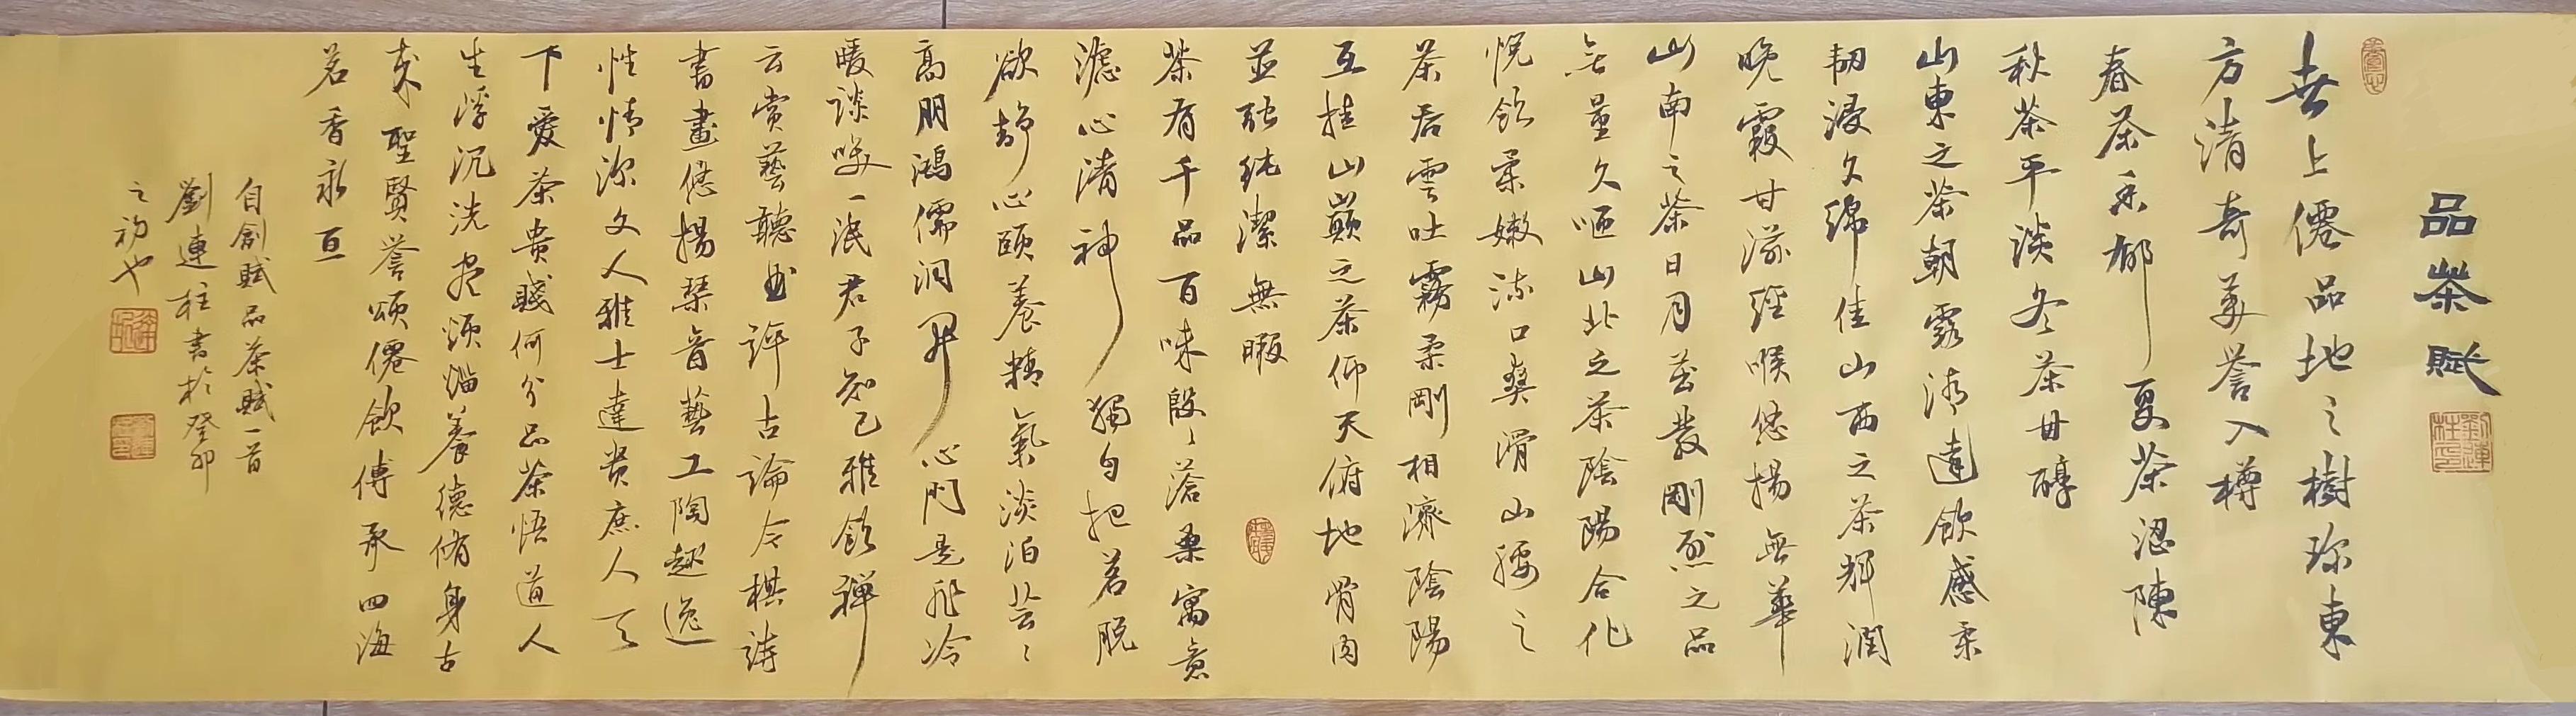 品茶賦
世上僊品地之樹珎東
方清奇美譽入樽
春茶香郁夏茶澀陳
秋茶平淡冬茶甘醇
山東之茶朝露清遠飲感柔
韧浸久綿佳山西之茶輝潤
晚霞甘滋經喉悠揚無華
山南之茶日月蒸發剛烈之品
無量久咂山北之茶陰陽合化
悦飲柔嫩流口爽滑山腰之
茶吞雲吐霧柔剛相濟陰陽
互挂山巔之茶仰天俯地骨肉
並融純潔無暇
茶有千品百味殷殷滄桑寓意
濾心清神獨自把茗脱
欲静心頤養精氣淡泊芸芸
高朋鴻儒洞開心門是非冷
暖談笑一泯君子知己雅飲禅
云賞藝聽曲評古論今棋詩
書畫悠揚琴音藝工陶趣逸
性情深文人雅士達贵庶人天
下愛茶貴賤何分品茶悟道人
生浮沉洗盡煩惱養德脩身古
來聖賢誉頌僊飲傳承四海
茗香永亘
自創賦品茶賦一首
劉連柱書於癸卯
之初也